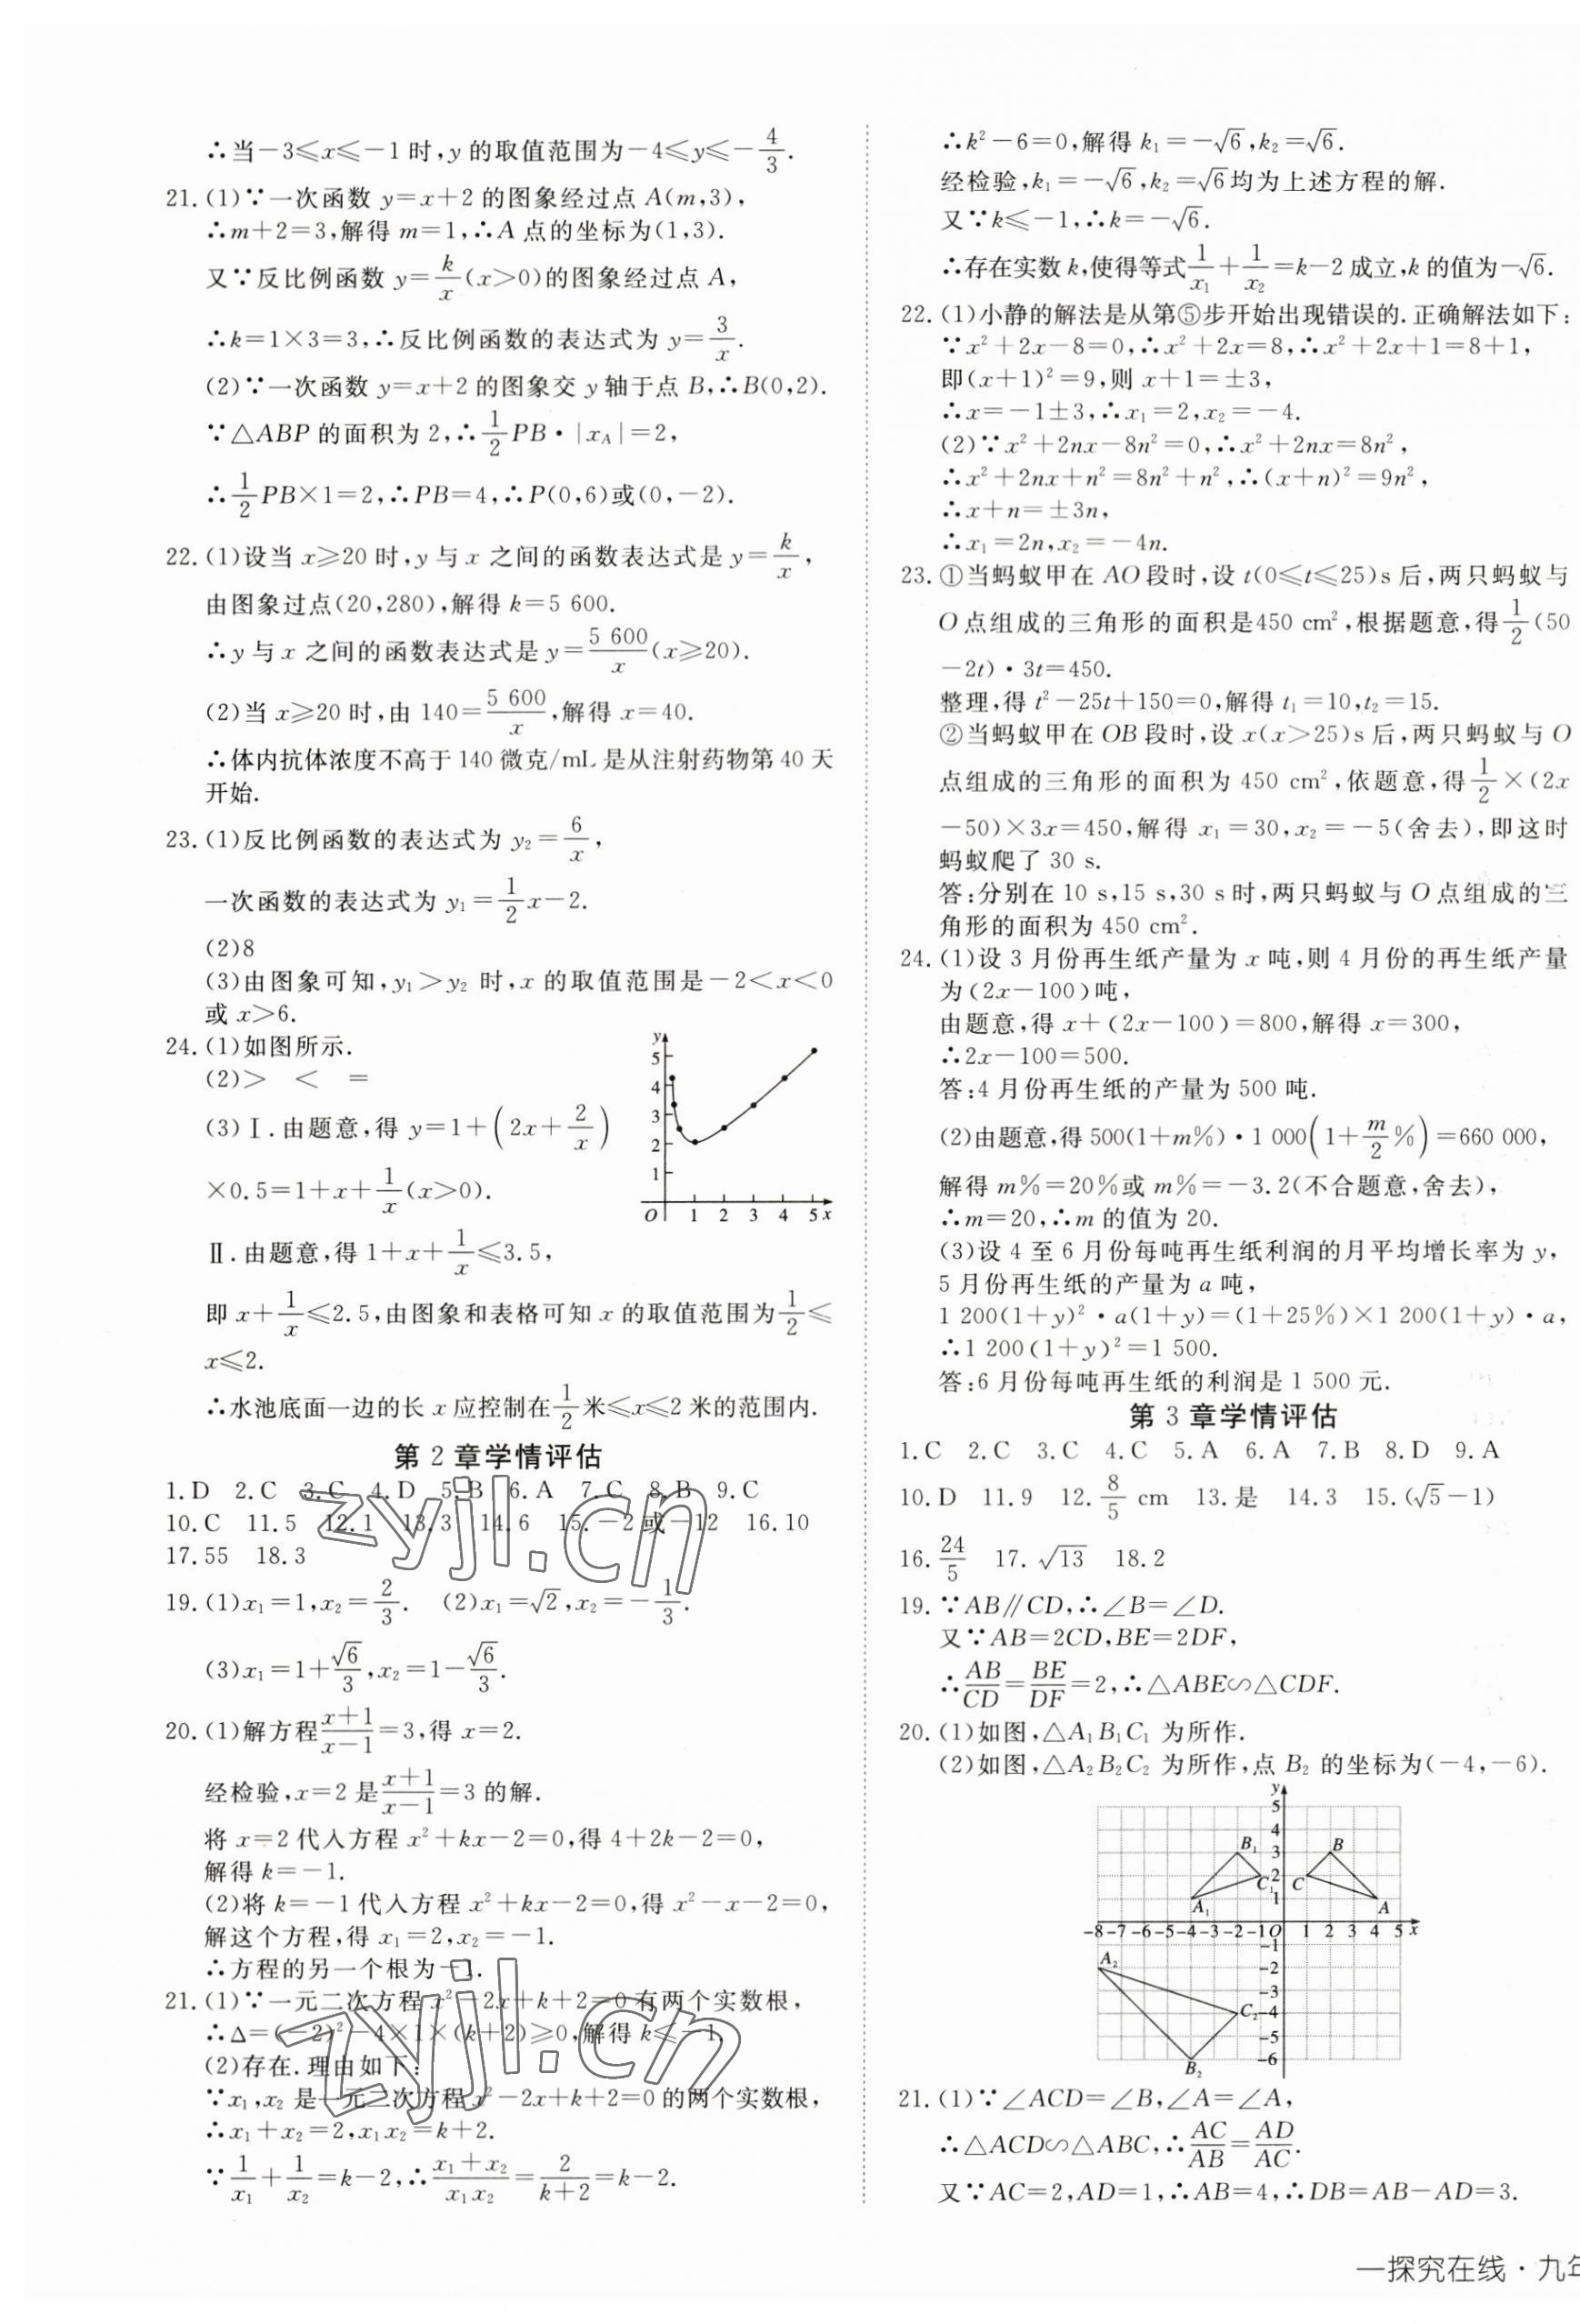 ∴当－3≤x≤－1时,y的取值范围为－4≤y≤－4/3.
21.(1)∵一次函数 y=x+2的图象经过点A(m,3),
∴m+2=3,解得 m=1,∴A点的坐标为(1,3).
又∵反比例函数 y=k/x(x>0)的图象经过点A,
∴k=1×3=3,∴反比例函数的表达式为 y=3/x.
(2)∵一次函数 y=x+2的图象交 y轴于点B,∴B(0,2).
∵△ABP的面积为2,∴1/2PB·|x_A|=2,
∴1/2PB×1=2,∴PB=4,∴P(0,6)或(0,－2).
22.(1)设当 x≥20时,y与x之间的函数表达式是 y=k/x,
由图象过点(20,280),解得 k=5 600.
∴y与x之间的函数表达式是 y=5 600/x(x≥20).
(2)当 x≥20时,由 140=5 600/x,解得 x=40.
∴体内抗体浓度不高于140微克/mL是从注射药物第40天
开始.
23.(1)反比例函数的表达式为 y₂=6/x,
一次函数的表达式为 y₁=1/2x－2.
(2)8
(3)由图象可知,y₁>y₂时,x的取值范围是－2<x<0
或x>6.
24.(1)如图所示.
(2)> < =
(3)Ⅰ.由题意,得 y=1+(2x+2/x)
×0.5=1+x+1/x(x>0).
y
5
4
3
2
1
O 1 2 3 4 5 x
Ⅱ.由题意,得1+x+1/x≤3.5,
即x+1/x≤2.5,由图象和表格可知x的取值范围为1/2≤
x≤2.
∴水池底面一边的长x应控制在1/2米≤x≤2米的范围内.
第2章学情评估
1.D 2.C 3.C 4.D 5.B 6.A 7.C 8.B 9.C
10.C 11.5 12.1 13.3 14.6 15.－2或－12 16.10
17.55 18.3
19.(1)x₁=1,x₂=2/3. (2)x₁=√2,x₂=－1/3.
(3)x₁=1+√6/3,x₂=1－√6/3.
20.(1)解方程(x+1)/(x－1)=3,得 x=2.
经检验,x=2是(x+1)/(x－1)=3的解.
将x=2代入方程x²+kx－2=0,得4+2k－2=0,
解得k=－1.
(2)将k=－1代入方程x²+kx－2=0,得x²－x－2=0,
解这个方程,得x₁=2,x₂=－1.
∴方程的另一个根为－1.
21.(1)∵一元二次方程x²－2x+k+2=0有两个实数根,
∴Δ=(－2)²－4×1×(k+2)≥0,解得k≤－1.
(2)存在.理由如下:
∵x₁,x₂是一元二次方程x²－2x+k+2=0的两个实数根,
∴x₁+x₂=2,x₁x₂=k+2.
∵1/x₁+1/x₂=k－2,∴(x₁+x₂)/(x₁x₂)=2/(k+2)=k－2.
∴k²－6=0,解得k₁=－√6,k₂=√6.
经检验,k₁=－√6,k₂=√6均为上述方程的解.
又∵k≤－1,∴k=－√6.
∴存在实数k,使得等式1/x₁+1/x₂=k－2成立,k的值为－√6.
22.(1)小静的解法是从第⑤步开始出现错误的.正确解法如下:
∵x²+2x－8=0,∴x²+2x=8,∴x²+2x+1=8+1,
即(x+1)²=9,则x+1=±3,
∴x=－1±3,∴x₁=2,x₂=－4.
(2)∵x²+2nx－8n²=0,∴x²+2nx=8n²,
∴x²+2nx+n²=8n²+n²,∴(x+n)²=9n²,
∴x+n=±3n,
∴x₁=2n,x₂=－4n.
23.①当蚂蚁甲在AO段时,设t(0≤t≤25)s后,两只蚂蚁与
O点组成的三角形的面积是450 cm²,根据题意,得1/2(50
－2t)·3t=450.
整理,得t²－25t+150=0,解得t₁=10,t₂=15.
②当蚂蚁甲在OB段时,设x(x>25)s后,两只蚂蚁与O
点组成的三角形的面积为450 cm²,依题意,得1/2×(2x
－50)×3x=450,解得x₁=30,x₂=－5(舍去),即这时
蚂蚁爬了30 s.
答:分别在10 s,15 s,30 s时,两只蚂蚁与O点组成的三
角形的面积为450 cm².
24.(1)设3月份再生纸产量为x吨,则4月份的再生纸产量
为(2x－100)吨,
由题意,得x+(2x－100)=800,解得x=300,
∴2x－100=500.
答:4月份再生纸的产量为500吨.
(2)由题意,得500(1+m%)·1 000(1+m/2%)=660 000,
解得m%=20%或m%=－3.2(不合题意,舍去),
∴m=20,∴m的值为20.
(3)设4至6月份每吨再生纸利润的月平均增长率为y,
5月份再生纸的产量为a吨,
1 200(1+y)²·a(1+y)=(1+25%)×1 200(1+y)·a,
∴1 200(1+y)²=1 500.
答:6月份每吨再生纸的利润是1 500元.
第3章学情评估
1.C 2.C 3.C 4.C 5.A 6.A 7.B 8.D 9.A
10.D 11.9 12.8/5 cm 13.是 14.3 15.(√5－1)
16.24/5 17.√13 18.2
19.∵AB∥CD,∴∠B=∠D.
又∵AB=2CD,BE=2DF,
∴AB/CD=BE/DF=2,∴△ABE∽△CDF.
20.(1)如图,△A₁B₁C₁为所作.
(2)如图,△A₂B₂C₂为所作,点B₂的坐标为(－4,－6).
y
5
4
B₁ 3 B
C₁ 2 C
A₁ 1 A
-8 -7 -6 -5 -4 -3 -2 -1 O 1 2 3 4 5 x
-1
A₂ -2
-3
C₂ -4
-5
B₂ -6
21.(1)∵∠ACD=∠B,∠A=∠A,
∴△ACD∽△ABC,∴AC/AB=AD/AC.
又∵AC=2,AD=1,∴AB=4,∴DB=AB－AD=3.
一探究在线·九年
zyjl.cn
zyjl.cn